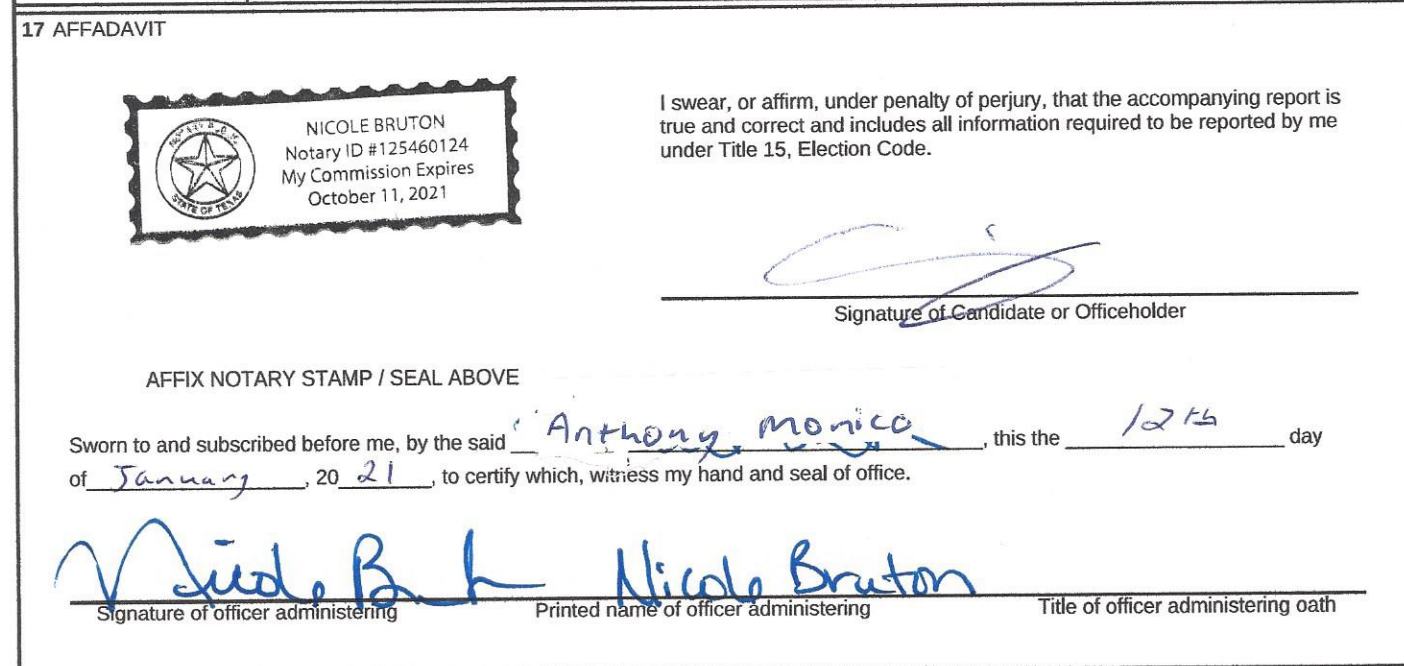 17 AFFADAVIT
NICOLE BRUTON
Notary ID #125460124
My Commission Expires
October 11, 2021
STATE OF TEXAS
I swear, or affirm, under penalty of perjury, that the accompanying report is
true and correct and includes all information required to be reported by me
under Title 15, Election Code.
Signature of Candidate or Officeholder
AFFIX NOTARY STAMP / SEAL ABOVE
Sworn to and subscribed before me, by the said Anthony Monico, this the 12th day
of January, 20 21, to certify which, witness my hand and seal of office.
Nicole Bruton
Signature of officer administering Printed name of officer administering Title of officer administering oath